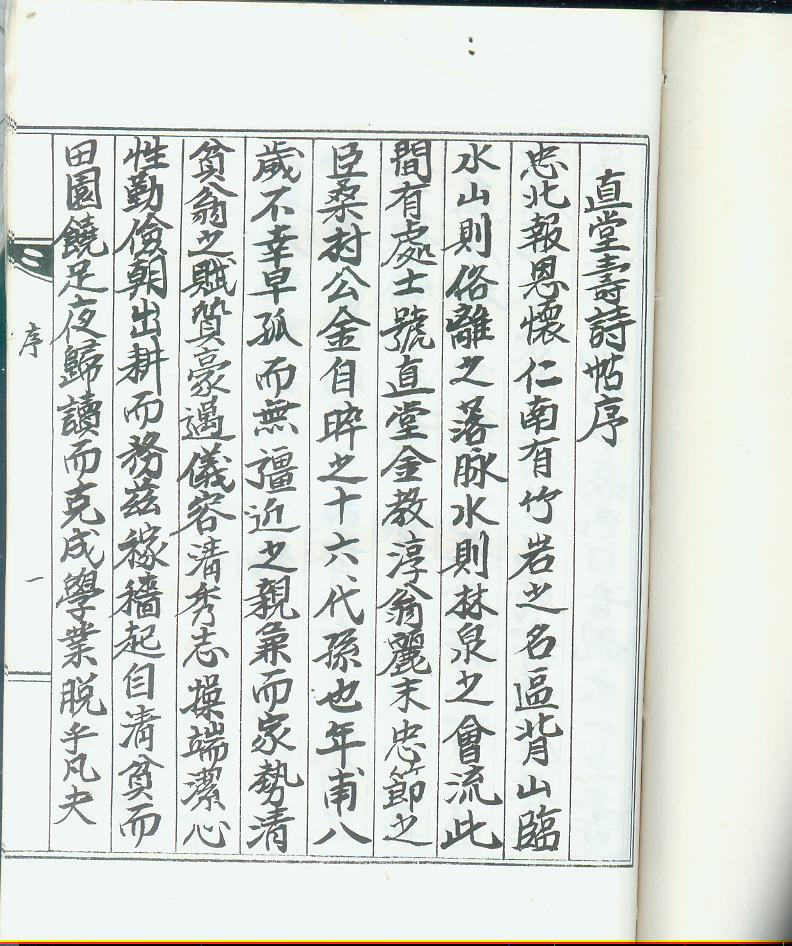 直堂壽詩帖序
忠北報恩懷仁南有竹岩之名區背山臨
水山則俗離之落脉水則林泉之會流此
間有處士號直堂金教淳翁麗末忠節之
臣桑村公金自粹之十六代孫也年甫八
歲不幸早孤而無彊近之親兼而家勢清
貧翁之賦質豪邁儀容清秀志操端潔心
性勤儉朝出耕而務茲稼穡起自清貧而
田園饒足夜歸讀而克成學業脱乎凡夫
序
一